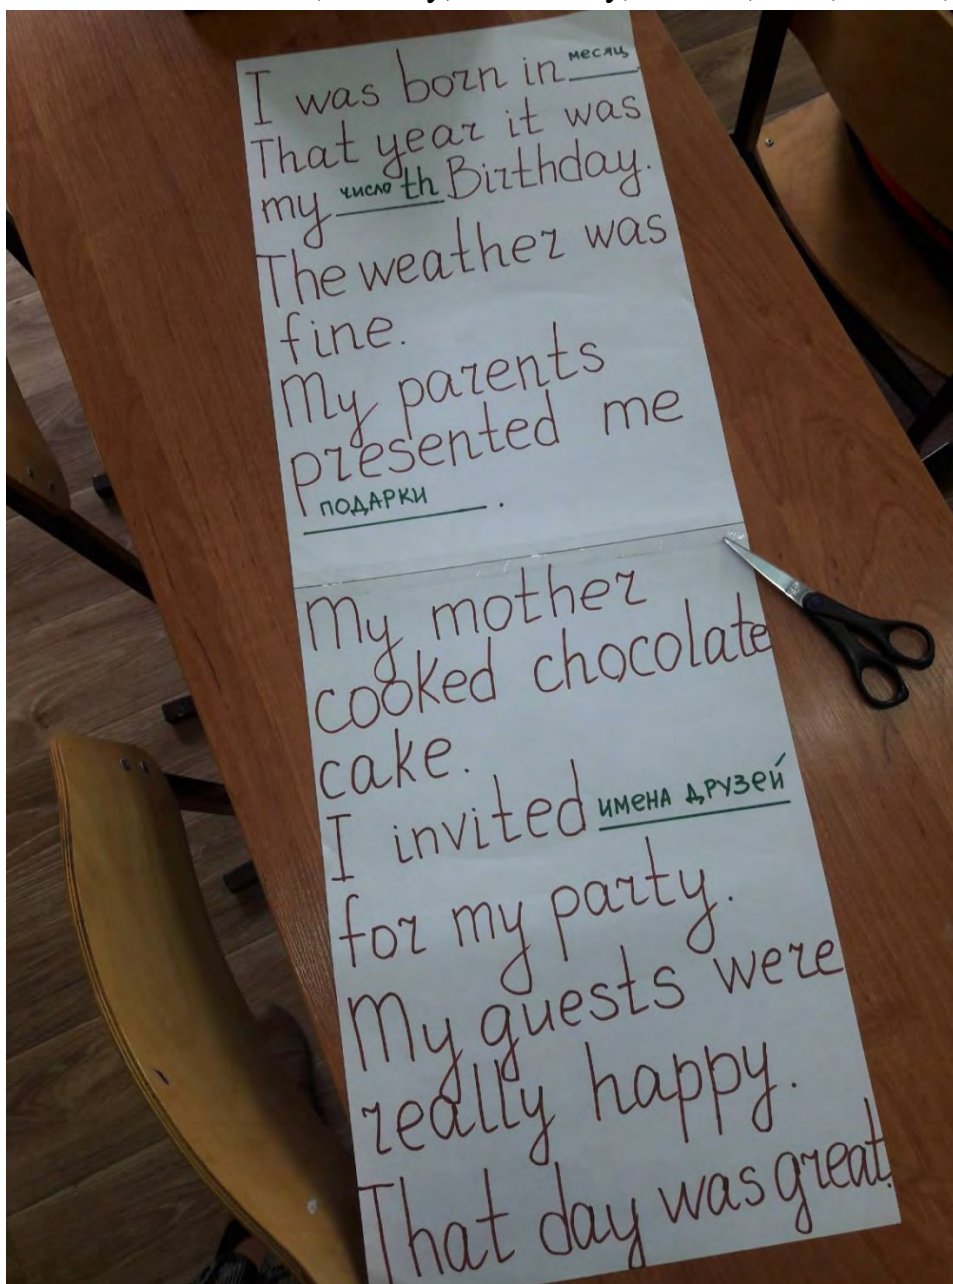 I was born in месяц
That year it was
my число th Birthday.
The weather was
fine.
My parents
presented me
ПОДАРКИ .
My mother
cooked chocolate
cake.
I invited имена друзей
for my party.
My guests were
really happy.
That day was great.